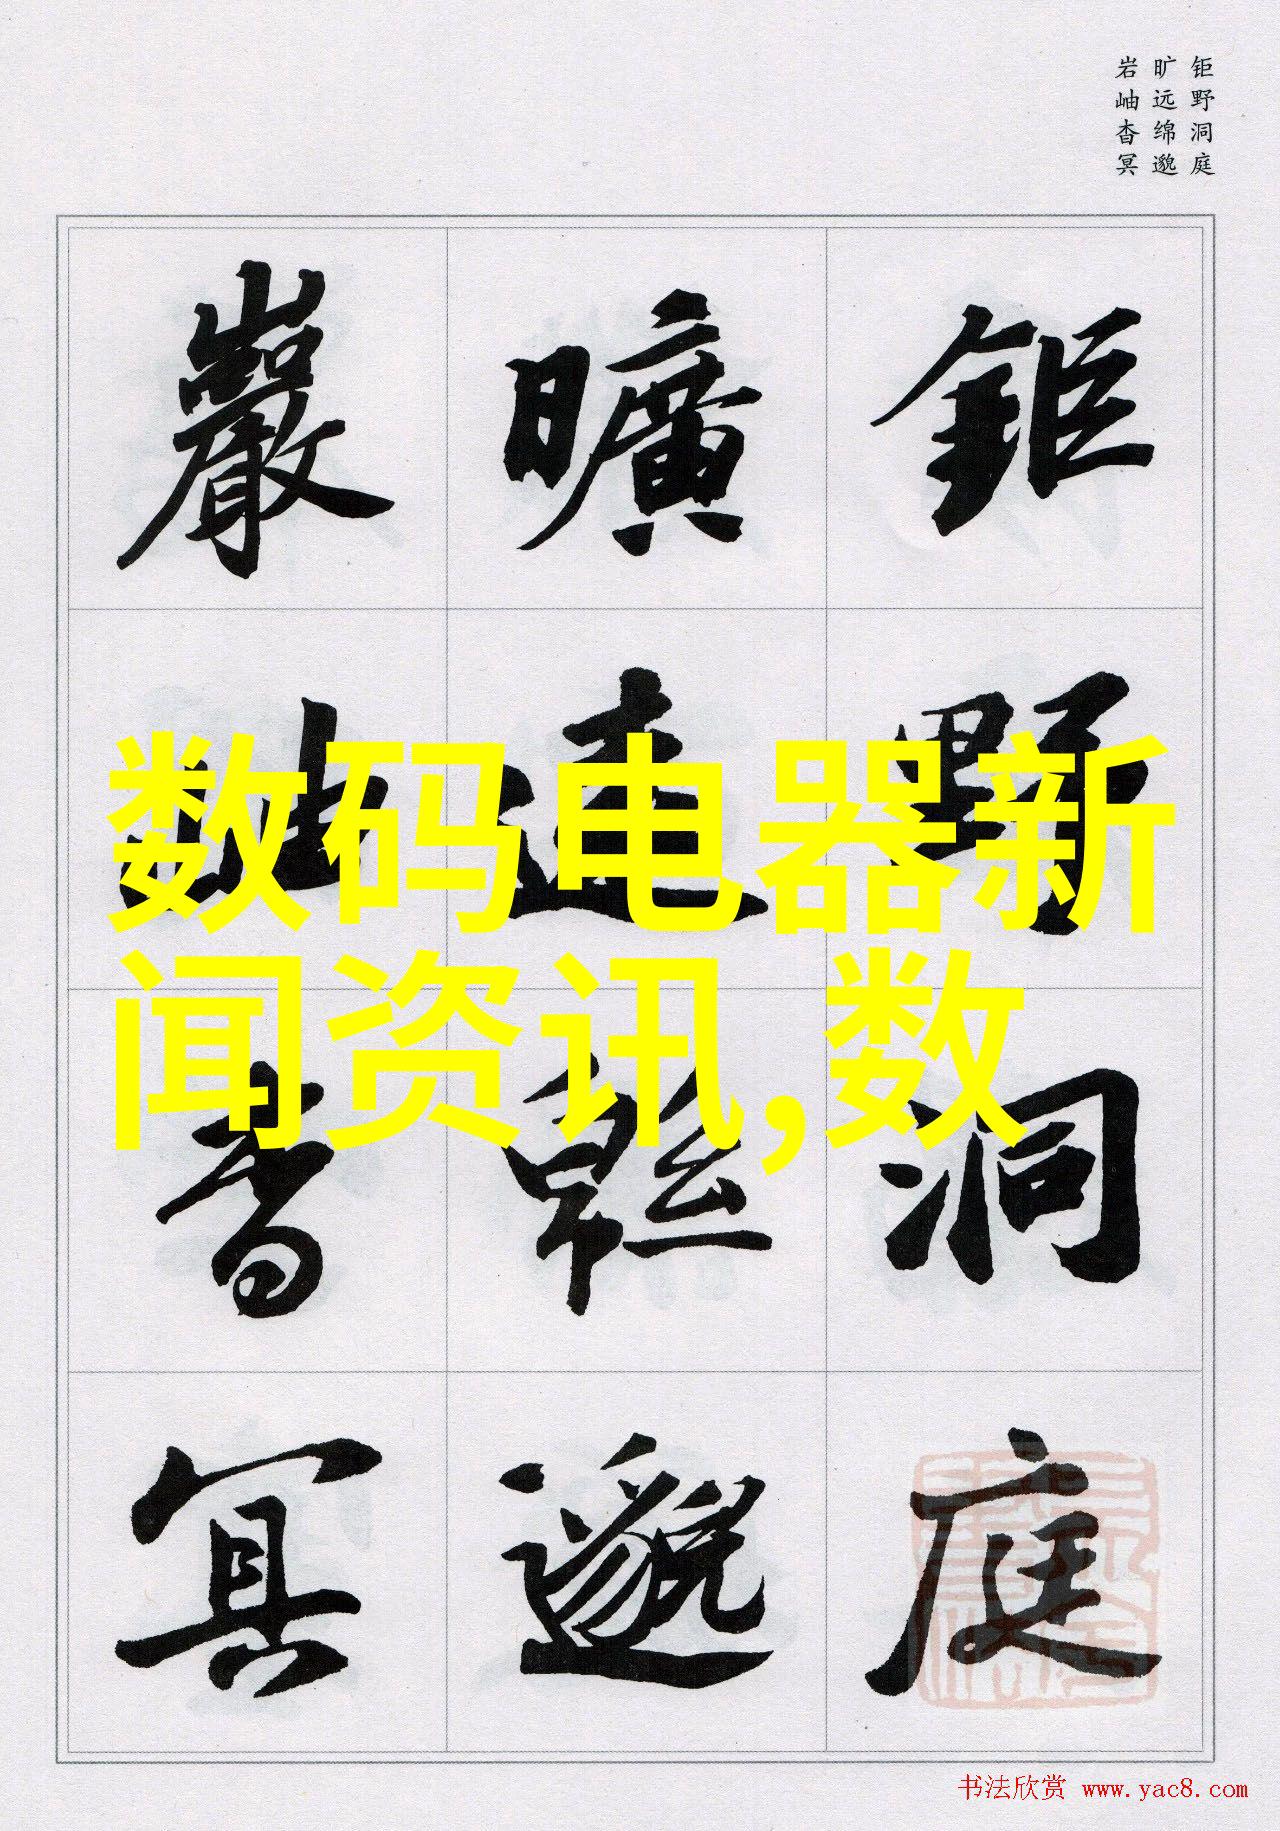 钜野洞庭
旷远绵邈
岩岫杳冥
鉅野洞庭
曠遠緜邈
巖岫杳冥
数码电器新
闻资讯,数
书法欣赏 www.yac8.com